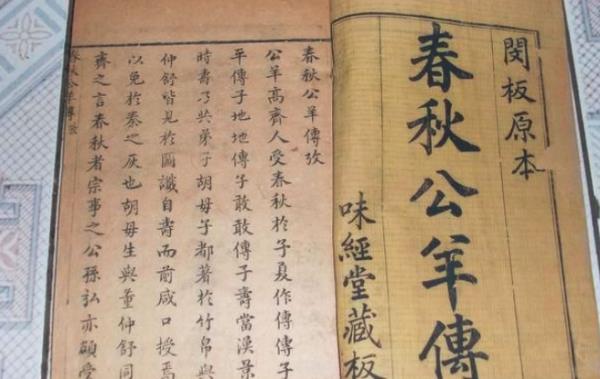 閔板原本
春秋公羊傳
味經堂藏板
春秋公羊傳攷
公羊高齊人受春秋於子夏作傳傳子
平傳子地地傳子敢敢傳子壽當漢景
時壽乃共弟子胡母子都著於竹帛與
仲舒皆見於圖讖自壽而前咸口授焉
以免於秦之灰也胡毋生與董仲舒同
齊之言春秋者宗事之公孫弘亦頗受
春秋公羊傳